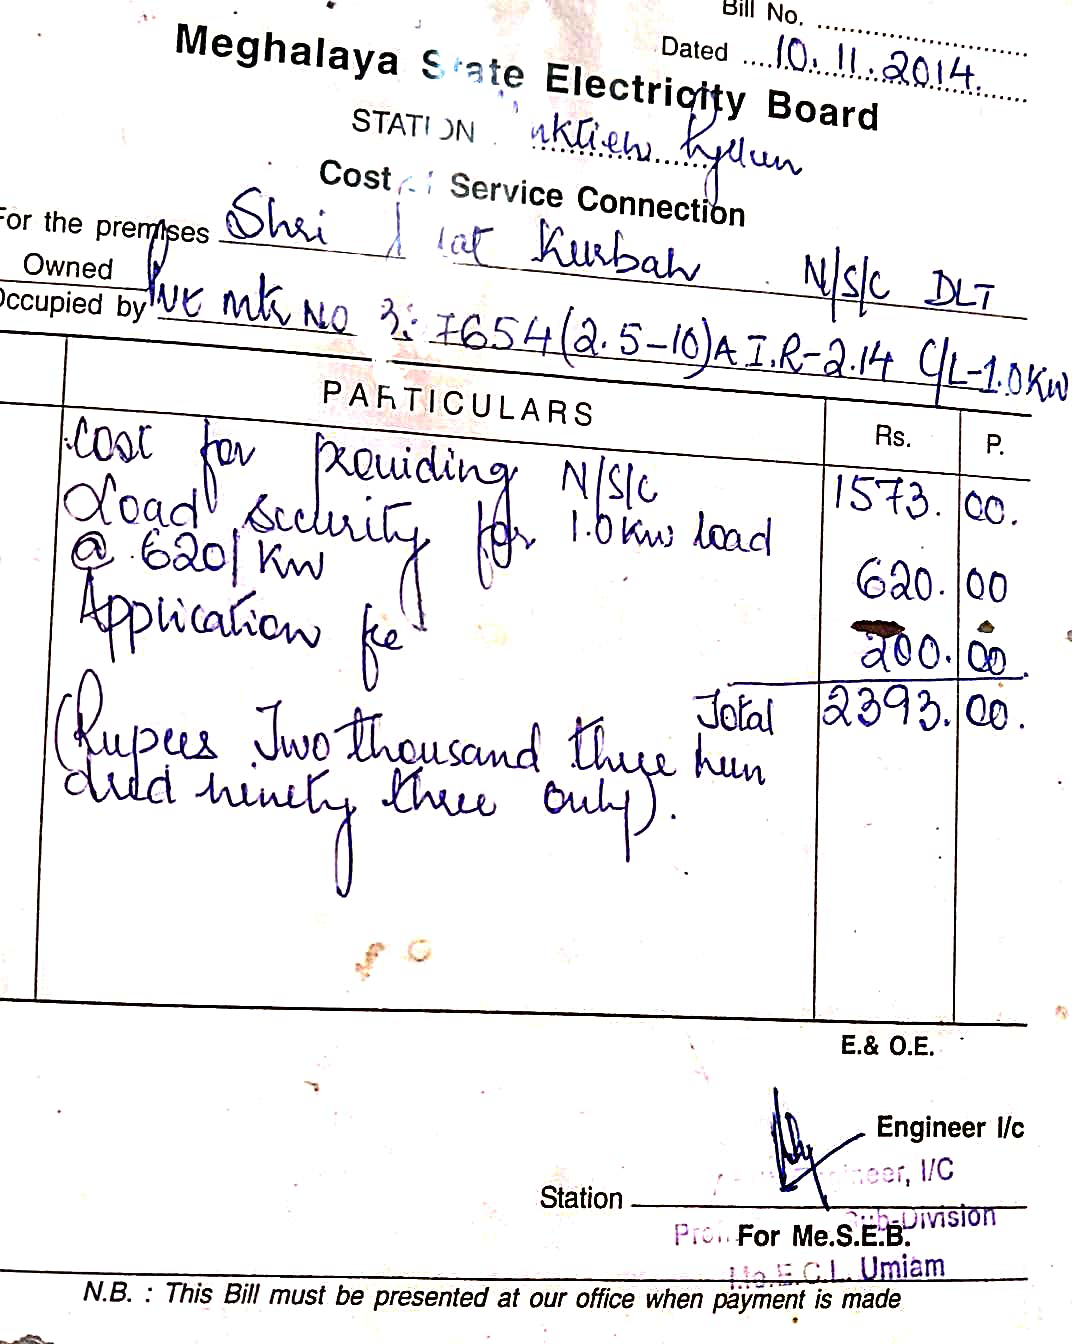 Bill No. ..............................
Dated ....10.11.2014.
Meghalaya State Electricity Board
STATION
Cost Service Connection
For the premises Shri Kurbah N/S/C DLT
Owned
Occupied by Mk No 7654(2.5-10)A I.R-2.14 C/L-1.0Kw
PARTICULARS Rs. P.
Cost for providing N/S/C 1573. 00.
Load security for 1.0Kw load
@ 620/Kw 620. 00
Application fee 200. 00
Total 2393. 00.
(Rupees Two thousand three hun
dred ninety three only).
E.& O.E.
Engineer I/c
I/C
Station
Sub-Division
For Me.S.E.B.
Me.E.C.L. Umiam
N.B. : This Bill must be presented at our office when payment is made